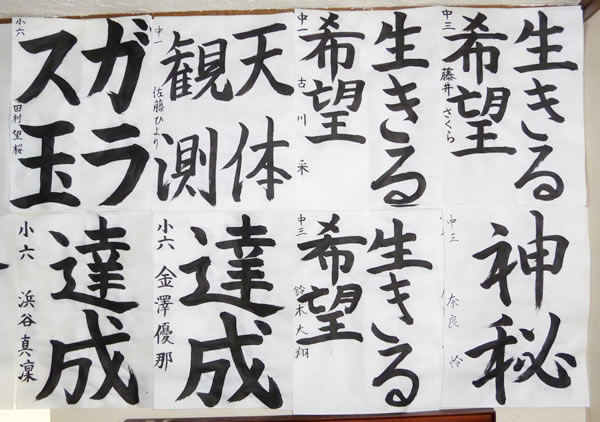 生きる
希望
中三 藤井 さくら
生きる
希望
中一 古川 采
天体
観測
中一 佐藤ひより
ガラ
ス玉
小六 田村 望桜
神秘
中三 奈良 怜
生きる
希望
中三 鈴木大翔
達成
小六 金澤優那
達成
小六 浜谷真凜